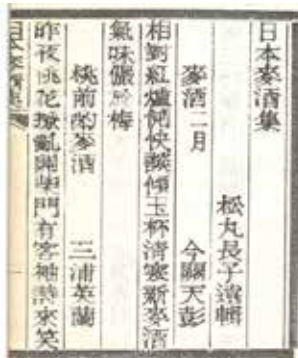 日本麥酒集
松丸長子濱輯
麥酒二月 今關天彭
相對紅爐快談傾玉杯清寒新麥酒
氣味儷於梅
桃前酌麥酒 三浦英蘭
昨夜桃花撩亂開柴門有客袖詩來笑
日本麥酒集